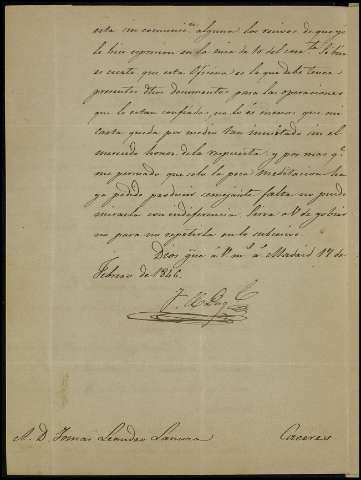 esta in comunicn. alguna los recivos de que yo
le hice espresion en la mia de 10 del corrte. Si bien
es cierto que esta Oficina es la que debe tener
presentes dhos documentos para las operaciones
que le estan confiadas, no lo és menos que mi
carta queda por medio tan inusitado sin el
merecido honor de la respuesta; y por mas q.
me persuado que solo la poca meditacion ha
ya podido producir semejante falta no puedo
mirarla con indiferencia. Sirva á V de gobier
no para no repetirla en lo subcesivo.
Dios gue á V ms as Madrid 14 de
Febrero de 1846.
A. D. Tomas Leandro
Caceres